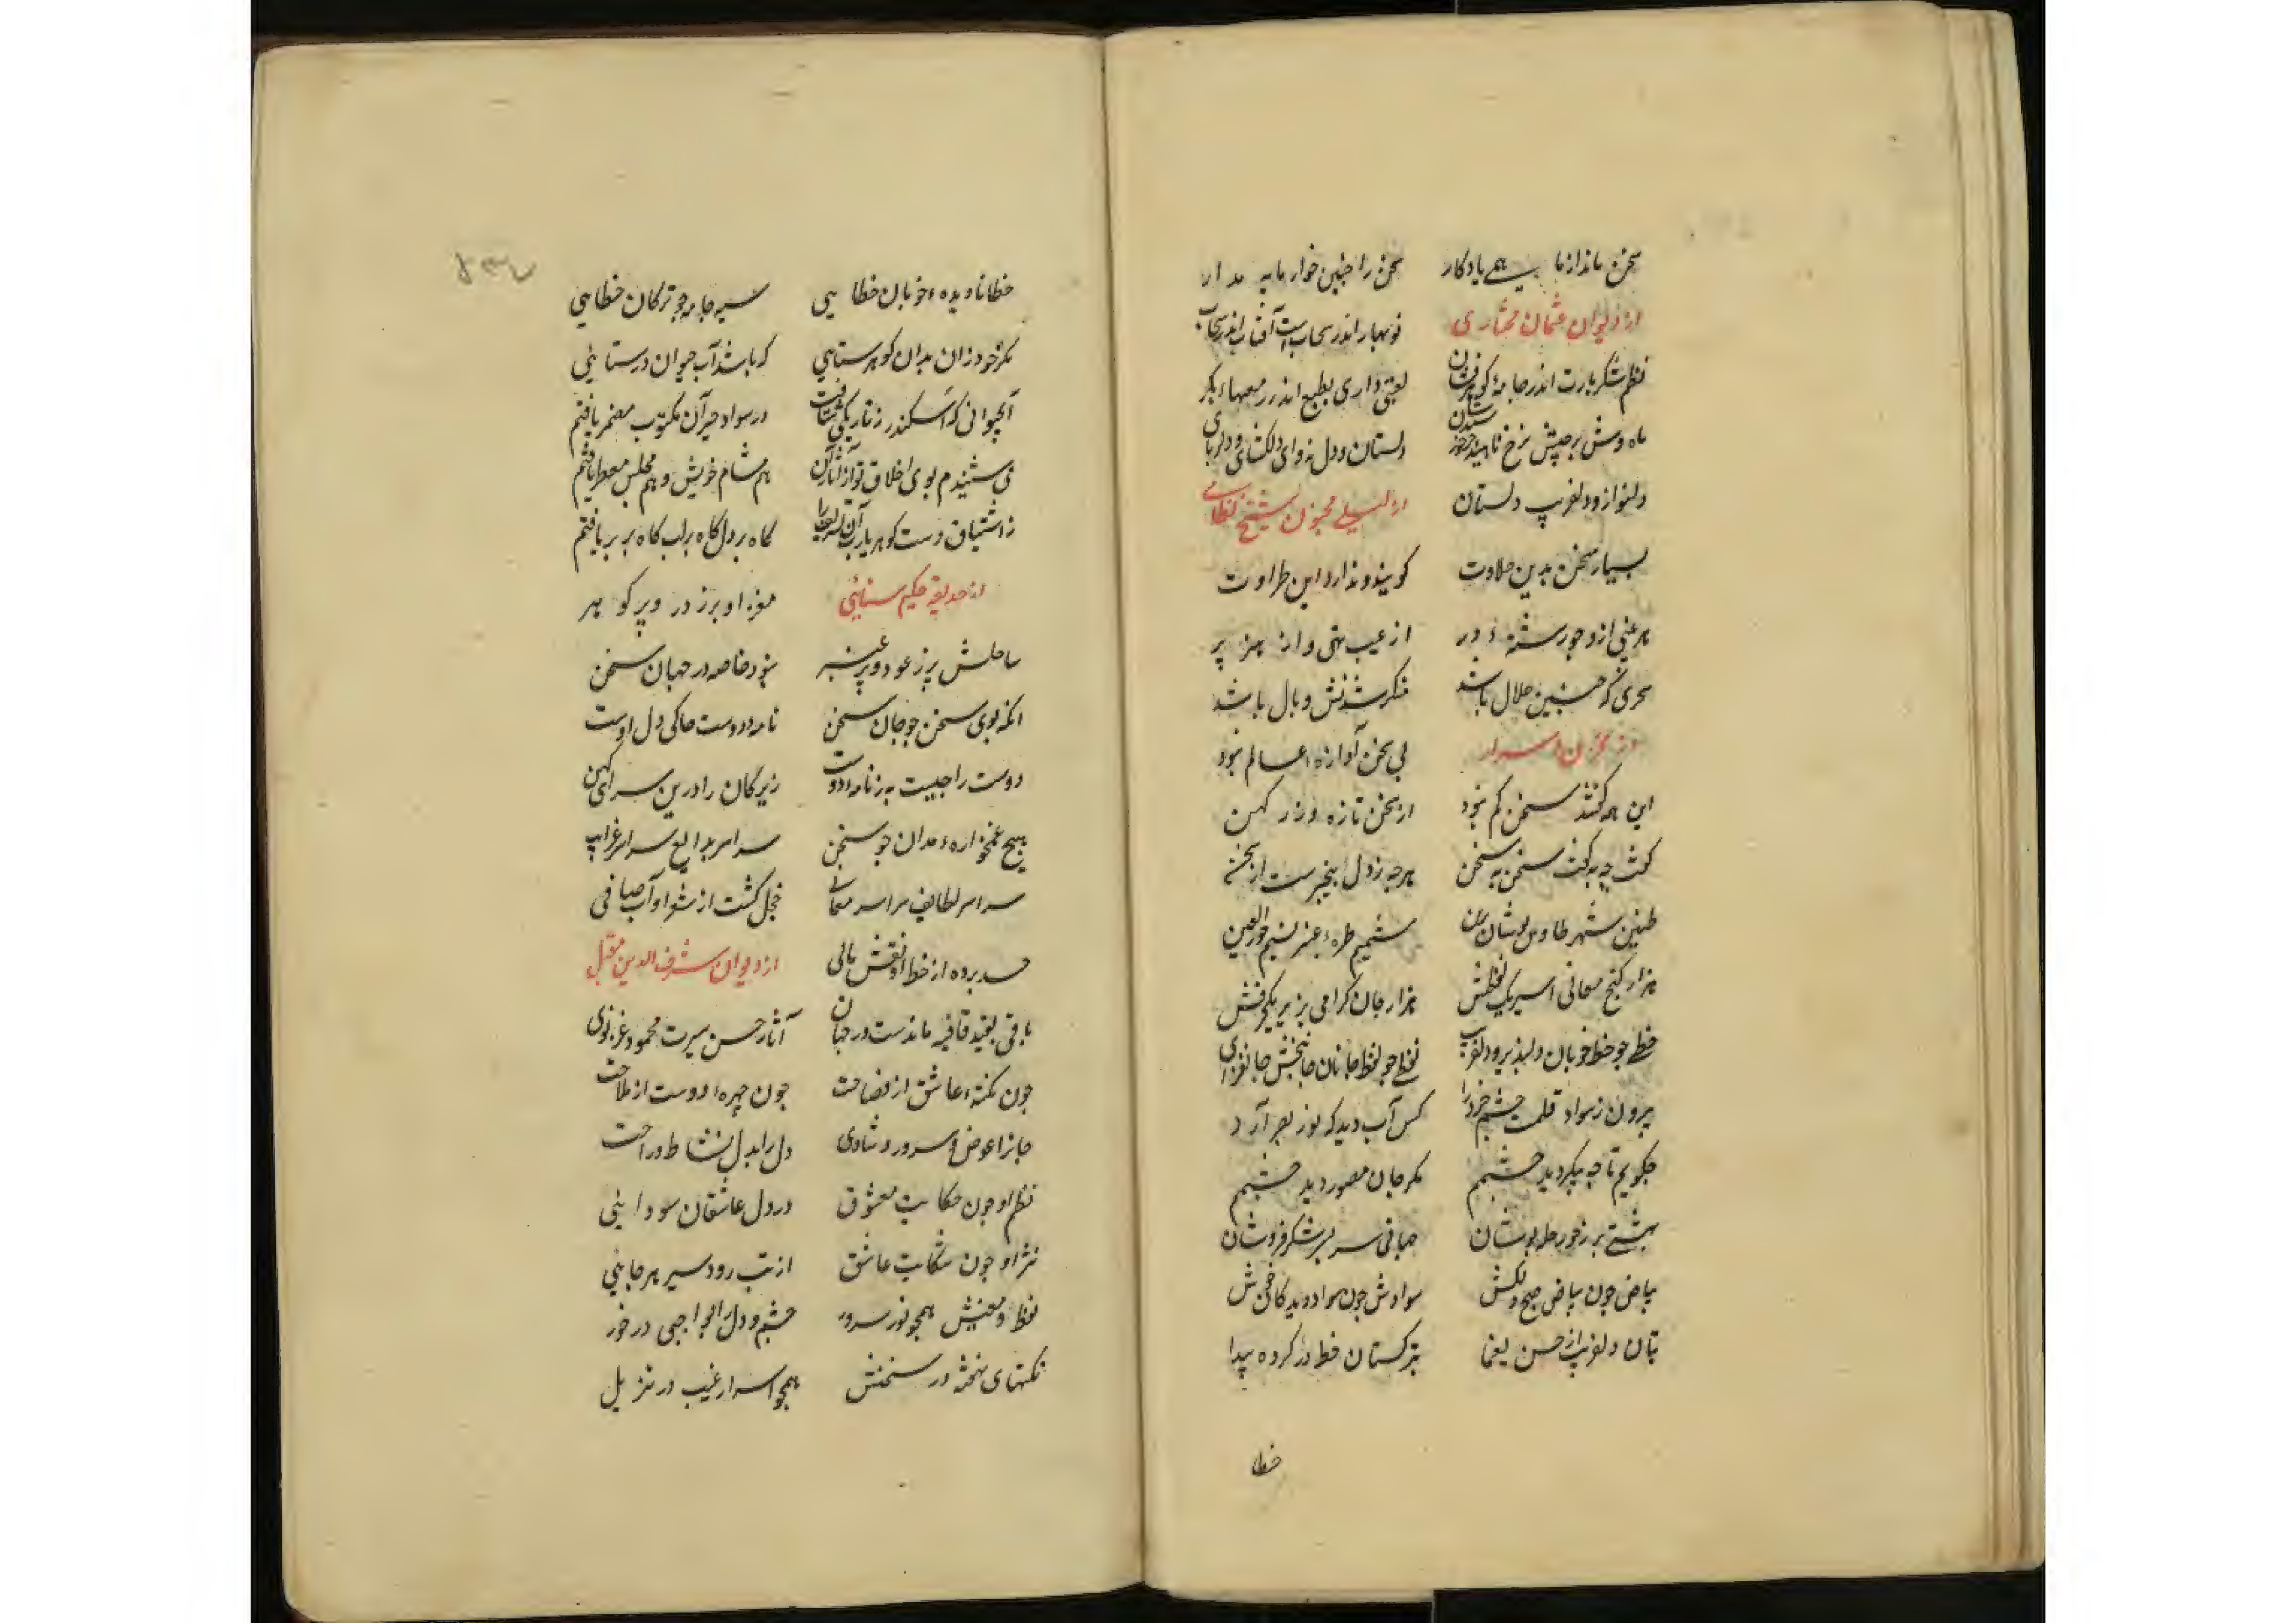 سخن ماند از ما همی یادکار سخن را جنین خوار مایه مدار
از دیوان عثمان مختاری نوبهار اندر سحابست آفتاب اندر سحاب
نظم شکربارت اندر جامهٔ کوهرفشان لعبتی داری بطبع اندر ز معنیهاء بکر
ماه وش برجیس رخ ناهید دلستان و دل نواز و دلکشای و دلربای
دلنواز و دلفریب دلستان از لیلی مجنون شیخ نظامی
بسیار سخن بدین حلاوت کویند و ندارد این طراوت
هر بیتی ازو جو رشتهٔ در از عیب تهی و از هنر پر
سحری که جنین حلال باشد منکر شدنش وبال باشد
از مخزن اسرار بی سخن آوازهٔ عالم نبود
این همه کفتند سخن کم نبود از سخن تازه و زر کهن
کفت چه به کفت سخن به سخن هرچه نه دل بیخبرست از سخن
شمیم طرهٔ عنبر نسیم حور العین
هزار کنج معانی اسیر یک لفظش هزار جان کرامی بزیر یک حرفش
خطی جو خط خوبان دلپذیر و دلفریب لفظی جو لفظ جانان جانبخش جانفزای
بیرون ز سواد قلمت چشم خرد را کس آب دید که نور بصر آرد
جکویم تا چه پیکر دید چشمم مکر جان مصور دید چشمم
بهشتی بر ز حور حله پوشان صافی سر بسر شکر فروشان
بیاض جون بیاض صبح دلکش سوادش جون سواد دیده
بتان دلفریب از حسن یغما بترکستان خط در کرده پیدا
خطا
خطا نادیده خوبان خطایی سیه جامه جو ترکان خطایی
مکر خود زان بدان کوهر ستایی که باشد آب حیوان درستایی
آبحیوانی که اسکندر ز تاریکی نیافت در سواد حرف آن مکتوب مضمر یافتم
می شنیدم بوی اخلاق تو از آثار آن هم مشام خویش و هم مجلس معطر یافتم
ز اشتیاق دست کوهر بارت آن کاه بر دل کاه بر لب کاه بر سر یافتم
از حدیقهٔ حکیم سنایی مغز او پر ز در و پر کوهر
ساحلش پر ز عود و پر عنبر نبود خاصه در جهان سخن
انکه بوی سخن جو جان سخن نامهٔ دوست حاکی دل اوست
دوست را جیست به ز نامهٔ دوست زیرکان را درین سرای کهن
هیچ غمخوارهٔ مدان جو سخن سراسر بدایع سراسر غرایب
سراسر لطایف سراسر معانی خجل کشت از شعر او آب صافی
حسد برده از خط او نقش مانی از دیوان شرف الدین مقبل
باقی بقید قافیه ماندست در جهان آثار حسن سیرت محمود غزنوی
جون نکتهٔ عاشق از فصاحت جون چهرهٔ دوست از ملاحت
جانرا عوض سرور و شادی دل را بدل نشاط و راحت
نظم او جون حکایت معشوق در دل عاشقان سودایی
نثر او جون شکایت عاشق از تب رود سیر هر جایی
لفظ و معنیش همچو نور سرور چشم و دل را جی در خور
نکتهای نهفته در سخنش همچو اسرار غیب در تنزیل